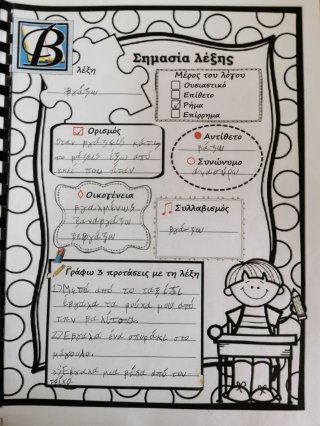 Β
Σημασία λέξης
λέξη
βγάζω
Μέρος του λόγου
Ουσιαστικό
Επίθετο
Ρήμα
Επίρρημα
Ορισμός
Όταν βγάζεις κάτι
το βάζεις έξω από
εκεί που ήταν
Αντίθετο
βάζω
Συνώνυμο
Οικογένεια
βγαλμένος
ξαναβγάζω
Συλλαβισμός
βγά-ζω
Γράφω 3 προτάσεις με τη λέξη
1) Μετά από το ταξίδι
έβγαλα τα ρούχα μου από
την βαλίτσα.
2) Έβγαλα ένα σπυράκι στο
μάγουλο.
3) Έβγαλα μια βίδα από τον
τοίχο